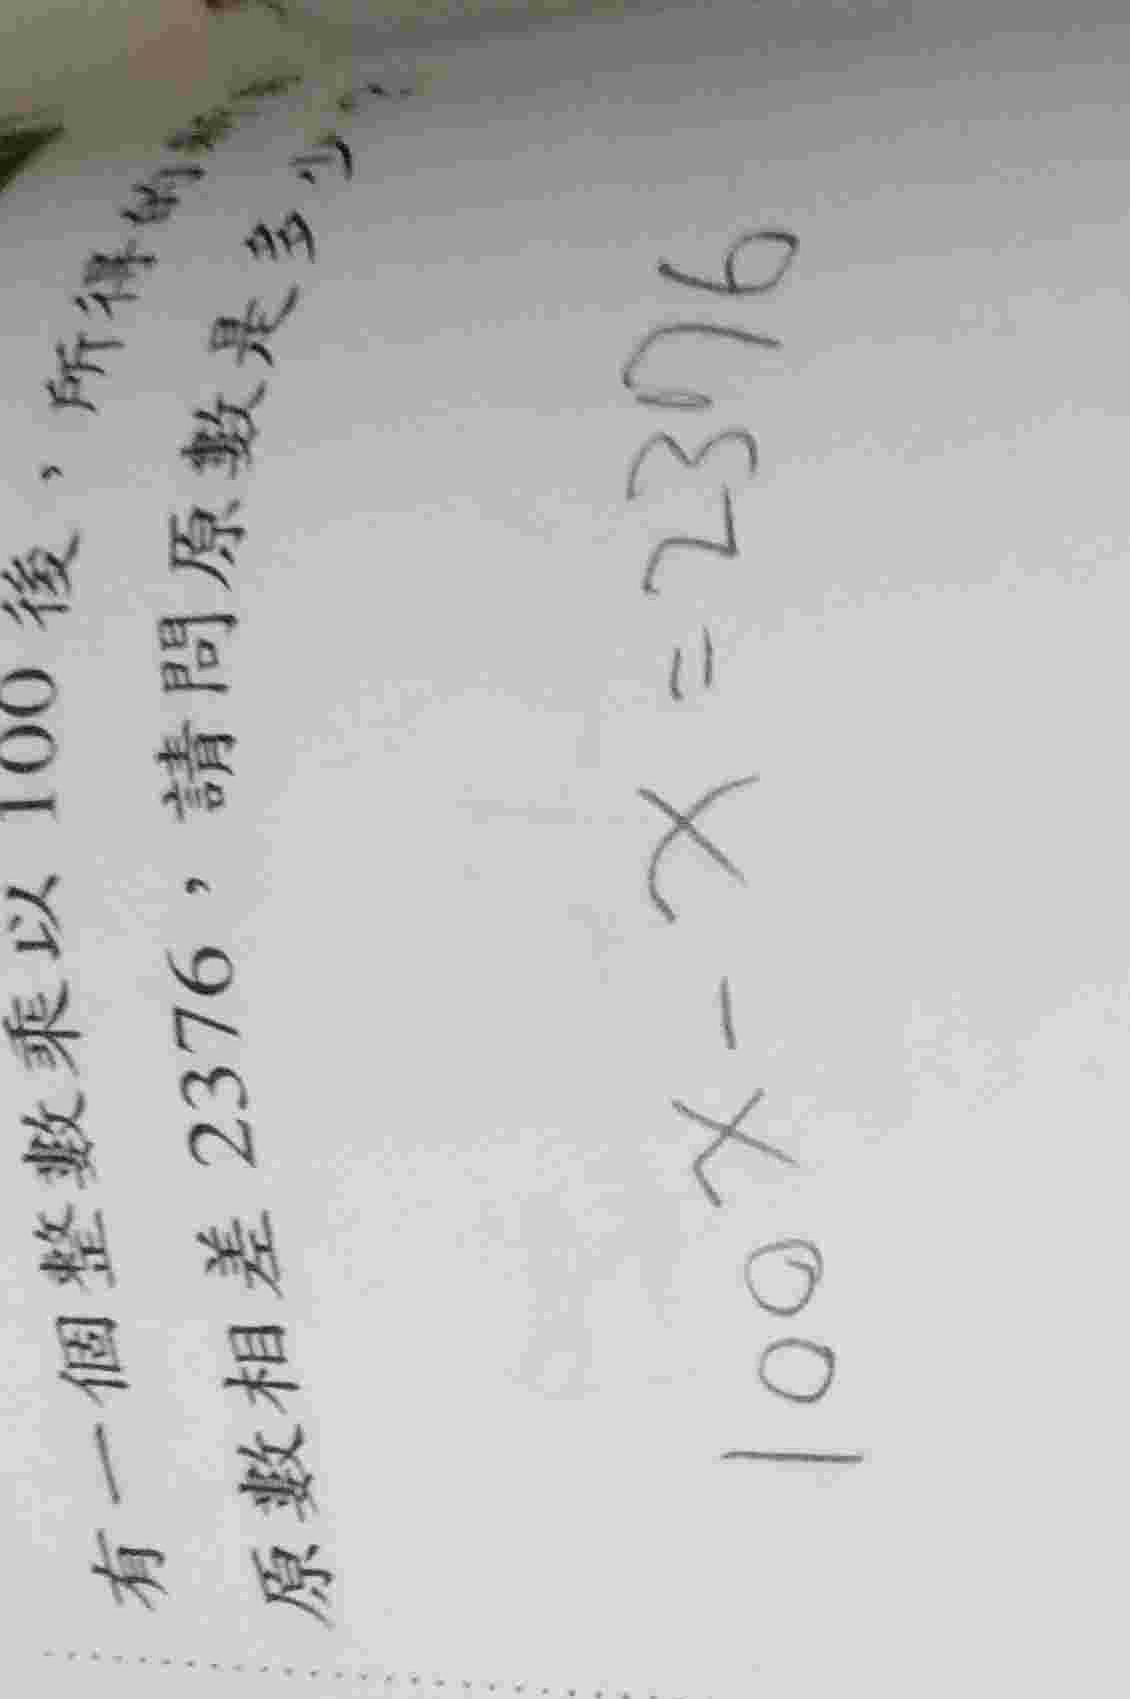 有一個整數乘以 100 後，所得的
原數相差 2376，請問原數是多少？
100x - x = 2376